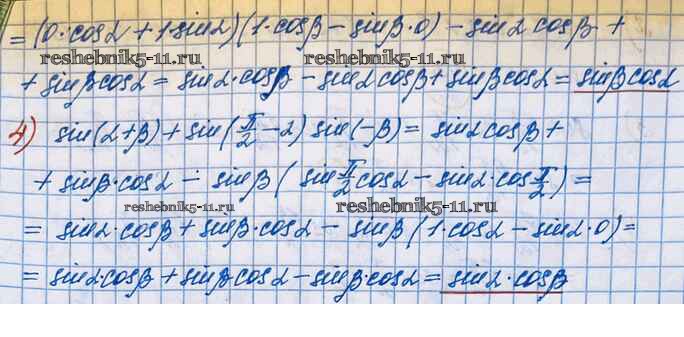 = (0·cosα + 1·sinα)(1·cosβ - sinβ·0) - sinα cosβ +
reshebnik5-11.ru reshebnik5-11.ru
+ sinβ cosα = sinα·cosβ - sinα cosβ + sinβ cosα = sinβ cosα
4) sin(α+β) + sin(π/2 - α) sin(-β) = sinα cosβ +
+ sinβ·cosα - sinβ (sin π/2 cosα - sinα·cos π/2) =
reshebnik5-11.ru reshebnik5-11.ru
= sinα·cosβ + sinβ·cosα - sinβ (1·cosα - sinα·0) =
= sinα·cosβ + sinβ cosα - sinβ·cosα = sinα·cosβ